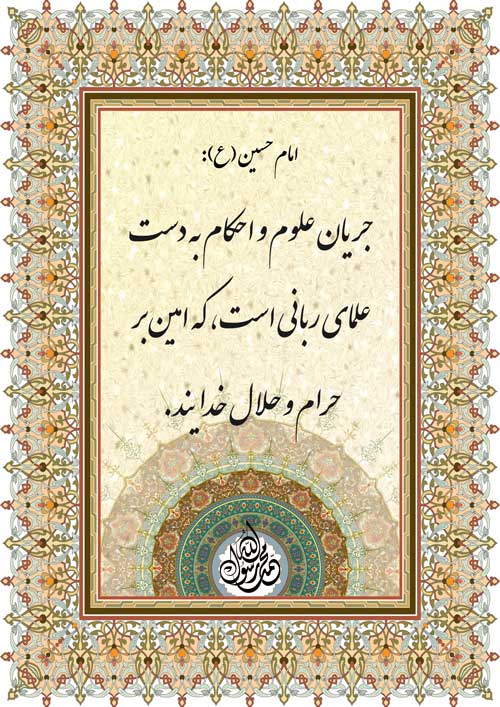 امام حسین (ع):
جریان علوم و احکام به دست
علمای ربانی است، که امین بر
حرام و حلال خدایند.
محمد رسول الله